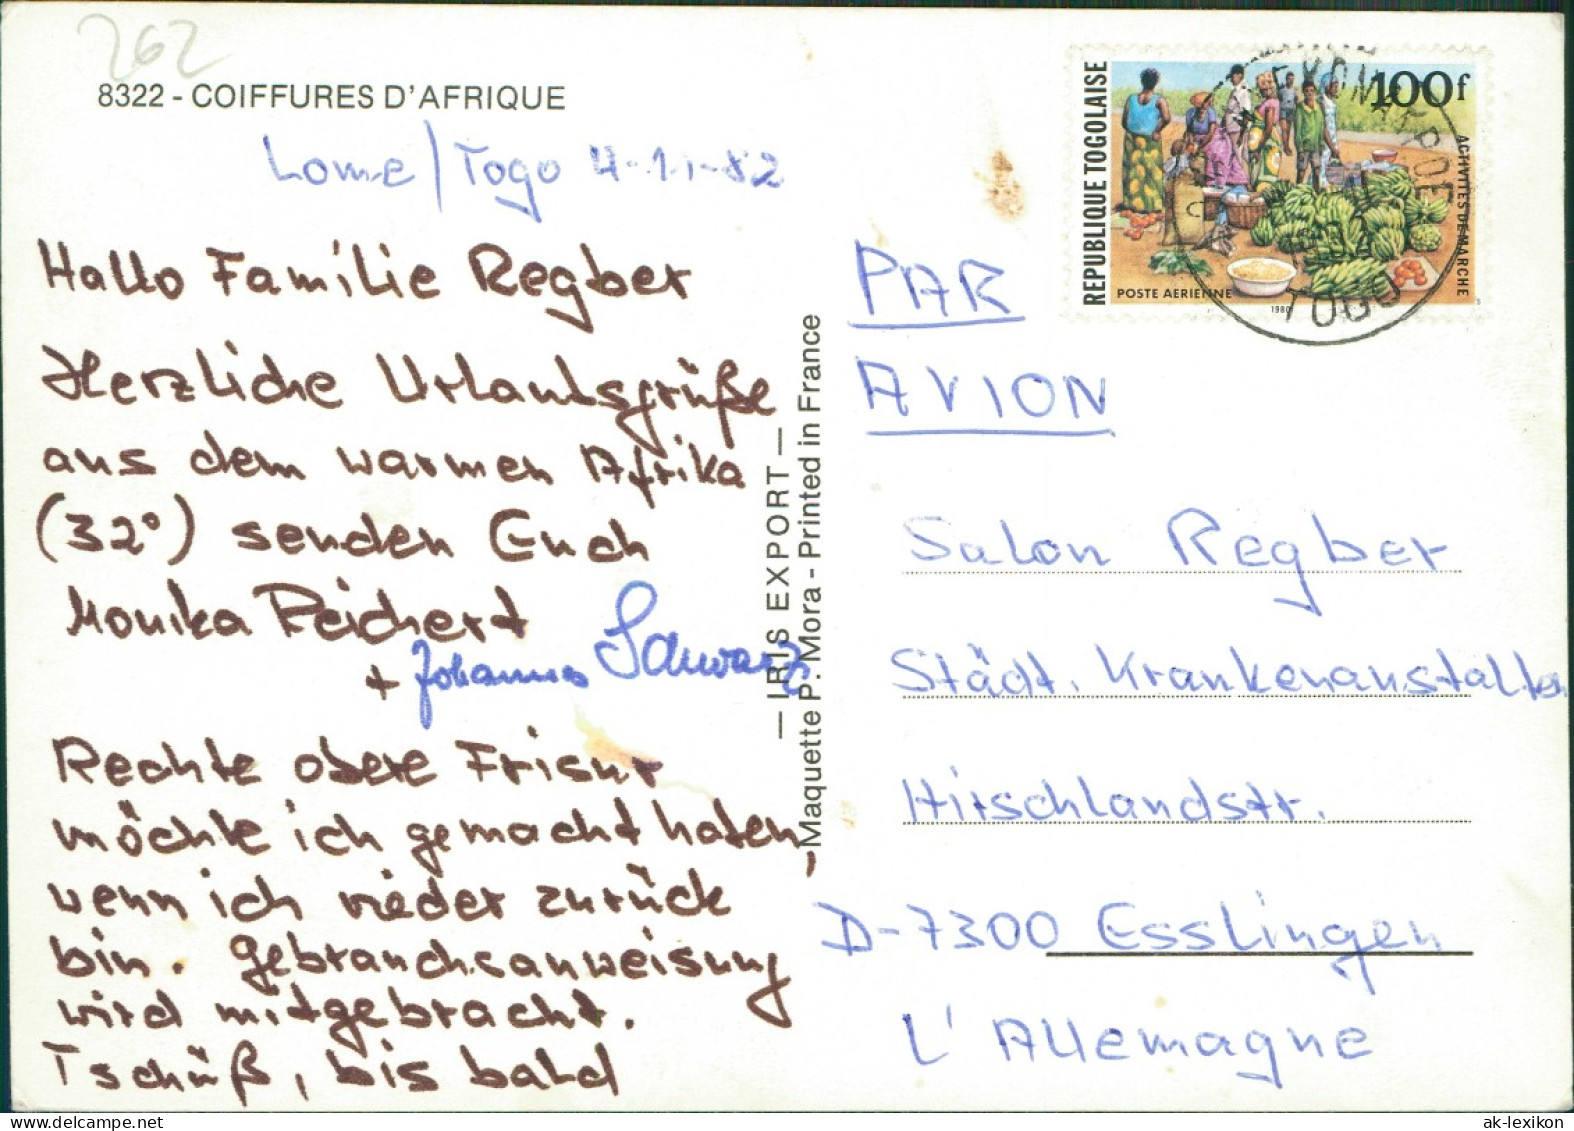 262
8322 - COIFFURES D'AFRIQUE
Lome / Togo 4-11-82
Hallo Familie Regber
Herzliche Urlaubsgrüße
aus dem warmen Afrika
(32°) senden Euch
Monika Reichert
+ Johannes Schwarz
Rechte obere Frisur
möchte ich gemacht haben,
wenn ich wieder zurück
bin. Gebrauchsanweisung
wird mitgebracht.
Tschüß, bis bald
— IRIS EXPORT —
Maquette P. Mora - Printed in France
REPUBLIQUE TOGOLAISE
100f
ACTIVITES DE MARCHE
POSTE AERIENNE
1980
TOGO
PAR
AVION
Salon Regber
Städt. Krankenanstalten
Hirschlandstr.
D-7300 Esslingen
L'Allemagne
ak-lexikon